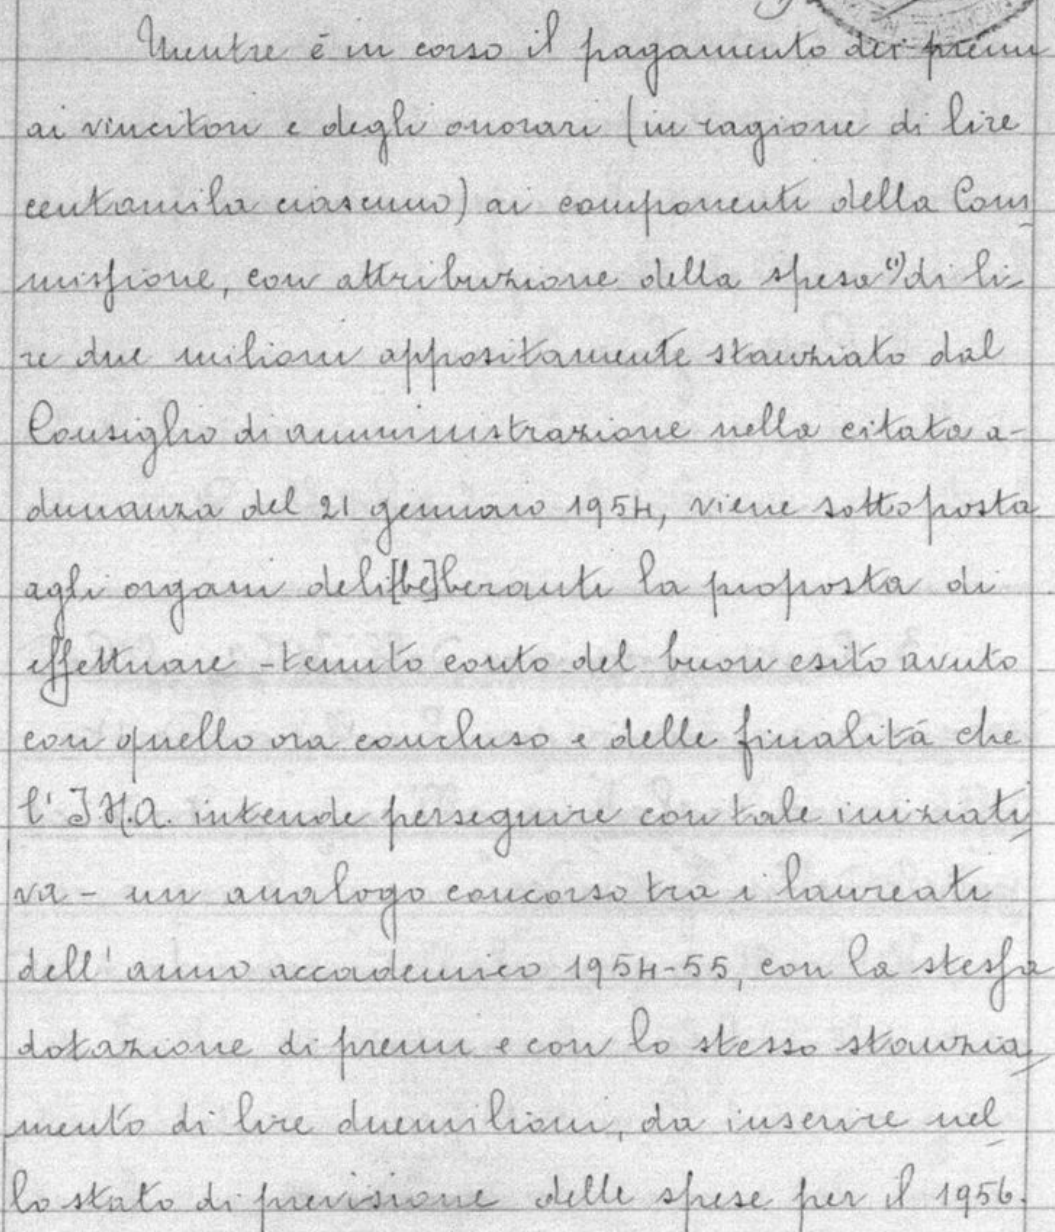 Mentre è in corso il pagamento dei premi
ai vincitori e degli onorari (in ragione di lire
centomila ciascuno) ai componenti della Com
missione, con attribuzione della spesa (1) di li-
re due milioni appositamente stanziato dal
Consiglio di amministrazione nella citata a-
dunanza del 21 gennaio 1954, viene sottoposta
agli organi deli[be]beranti la proposta di
effettuare - tenuto conto del buon esito avuto
con quello ora concluso e delle finalità che
l'I.N.A. intende perseguire con tale iniziati
va - un analogo concorso tra i laureati
dell'anno accademico 1954-55, con la stessa
dotazione di premi e con lo stesso stanzia
mento di lire duemilioni, da inserire nel
lo stato di previsione delle spese per il 1956.